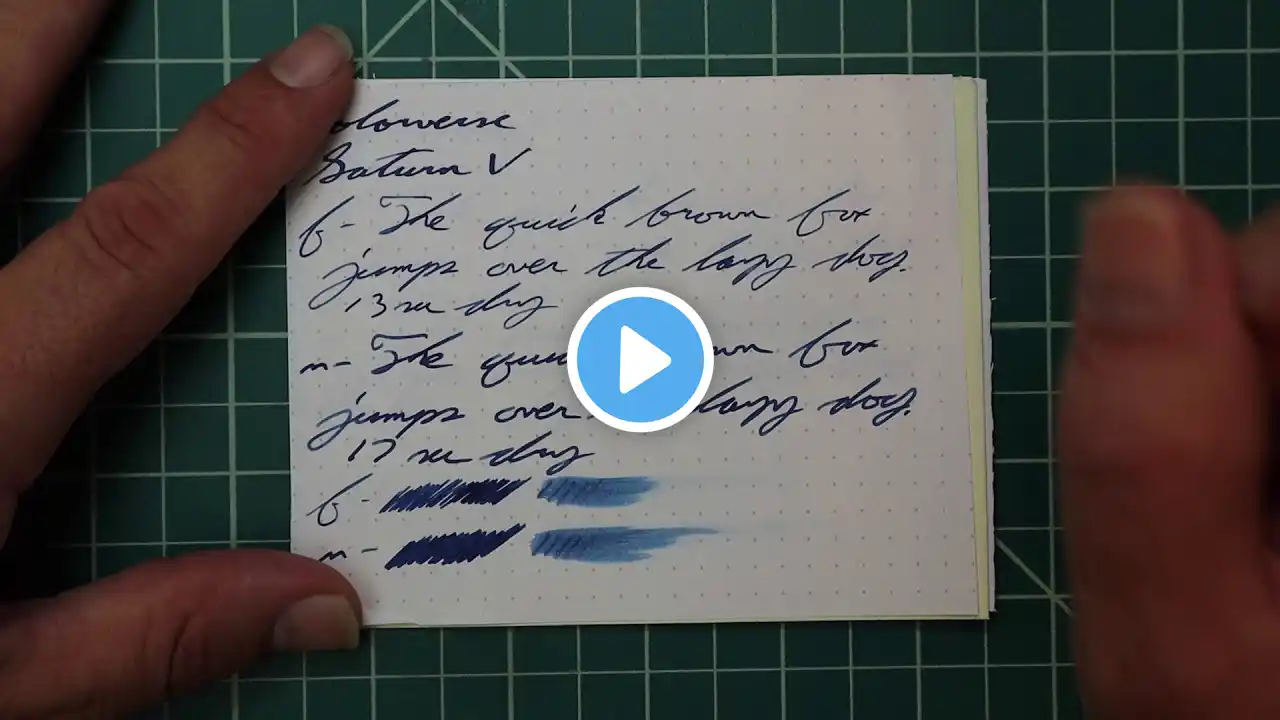 olowerse
Saturn V
f - The quick brown fox
jumps over the lazy dog.
13 sec dry
m - The quick brown fox
jumps over lazy dog.
17 sec dry
f -
m -